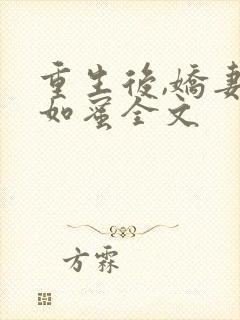 重生後,嬌妻
如蜜全文
方霖